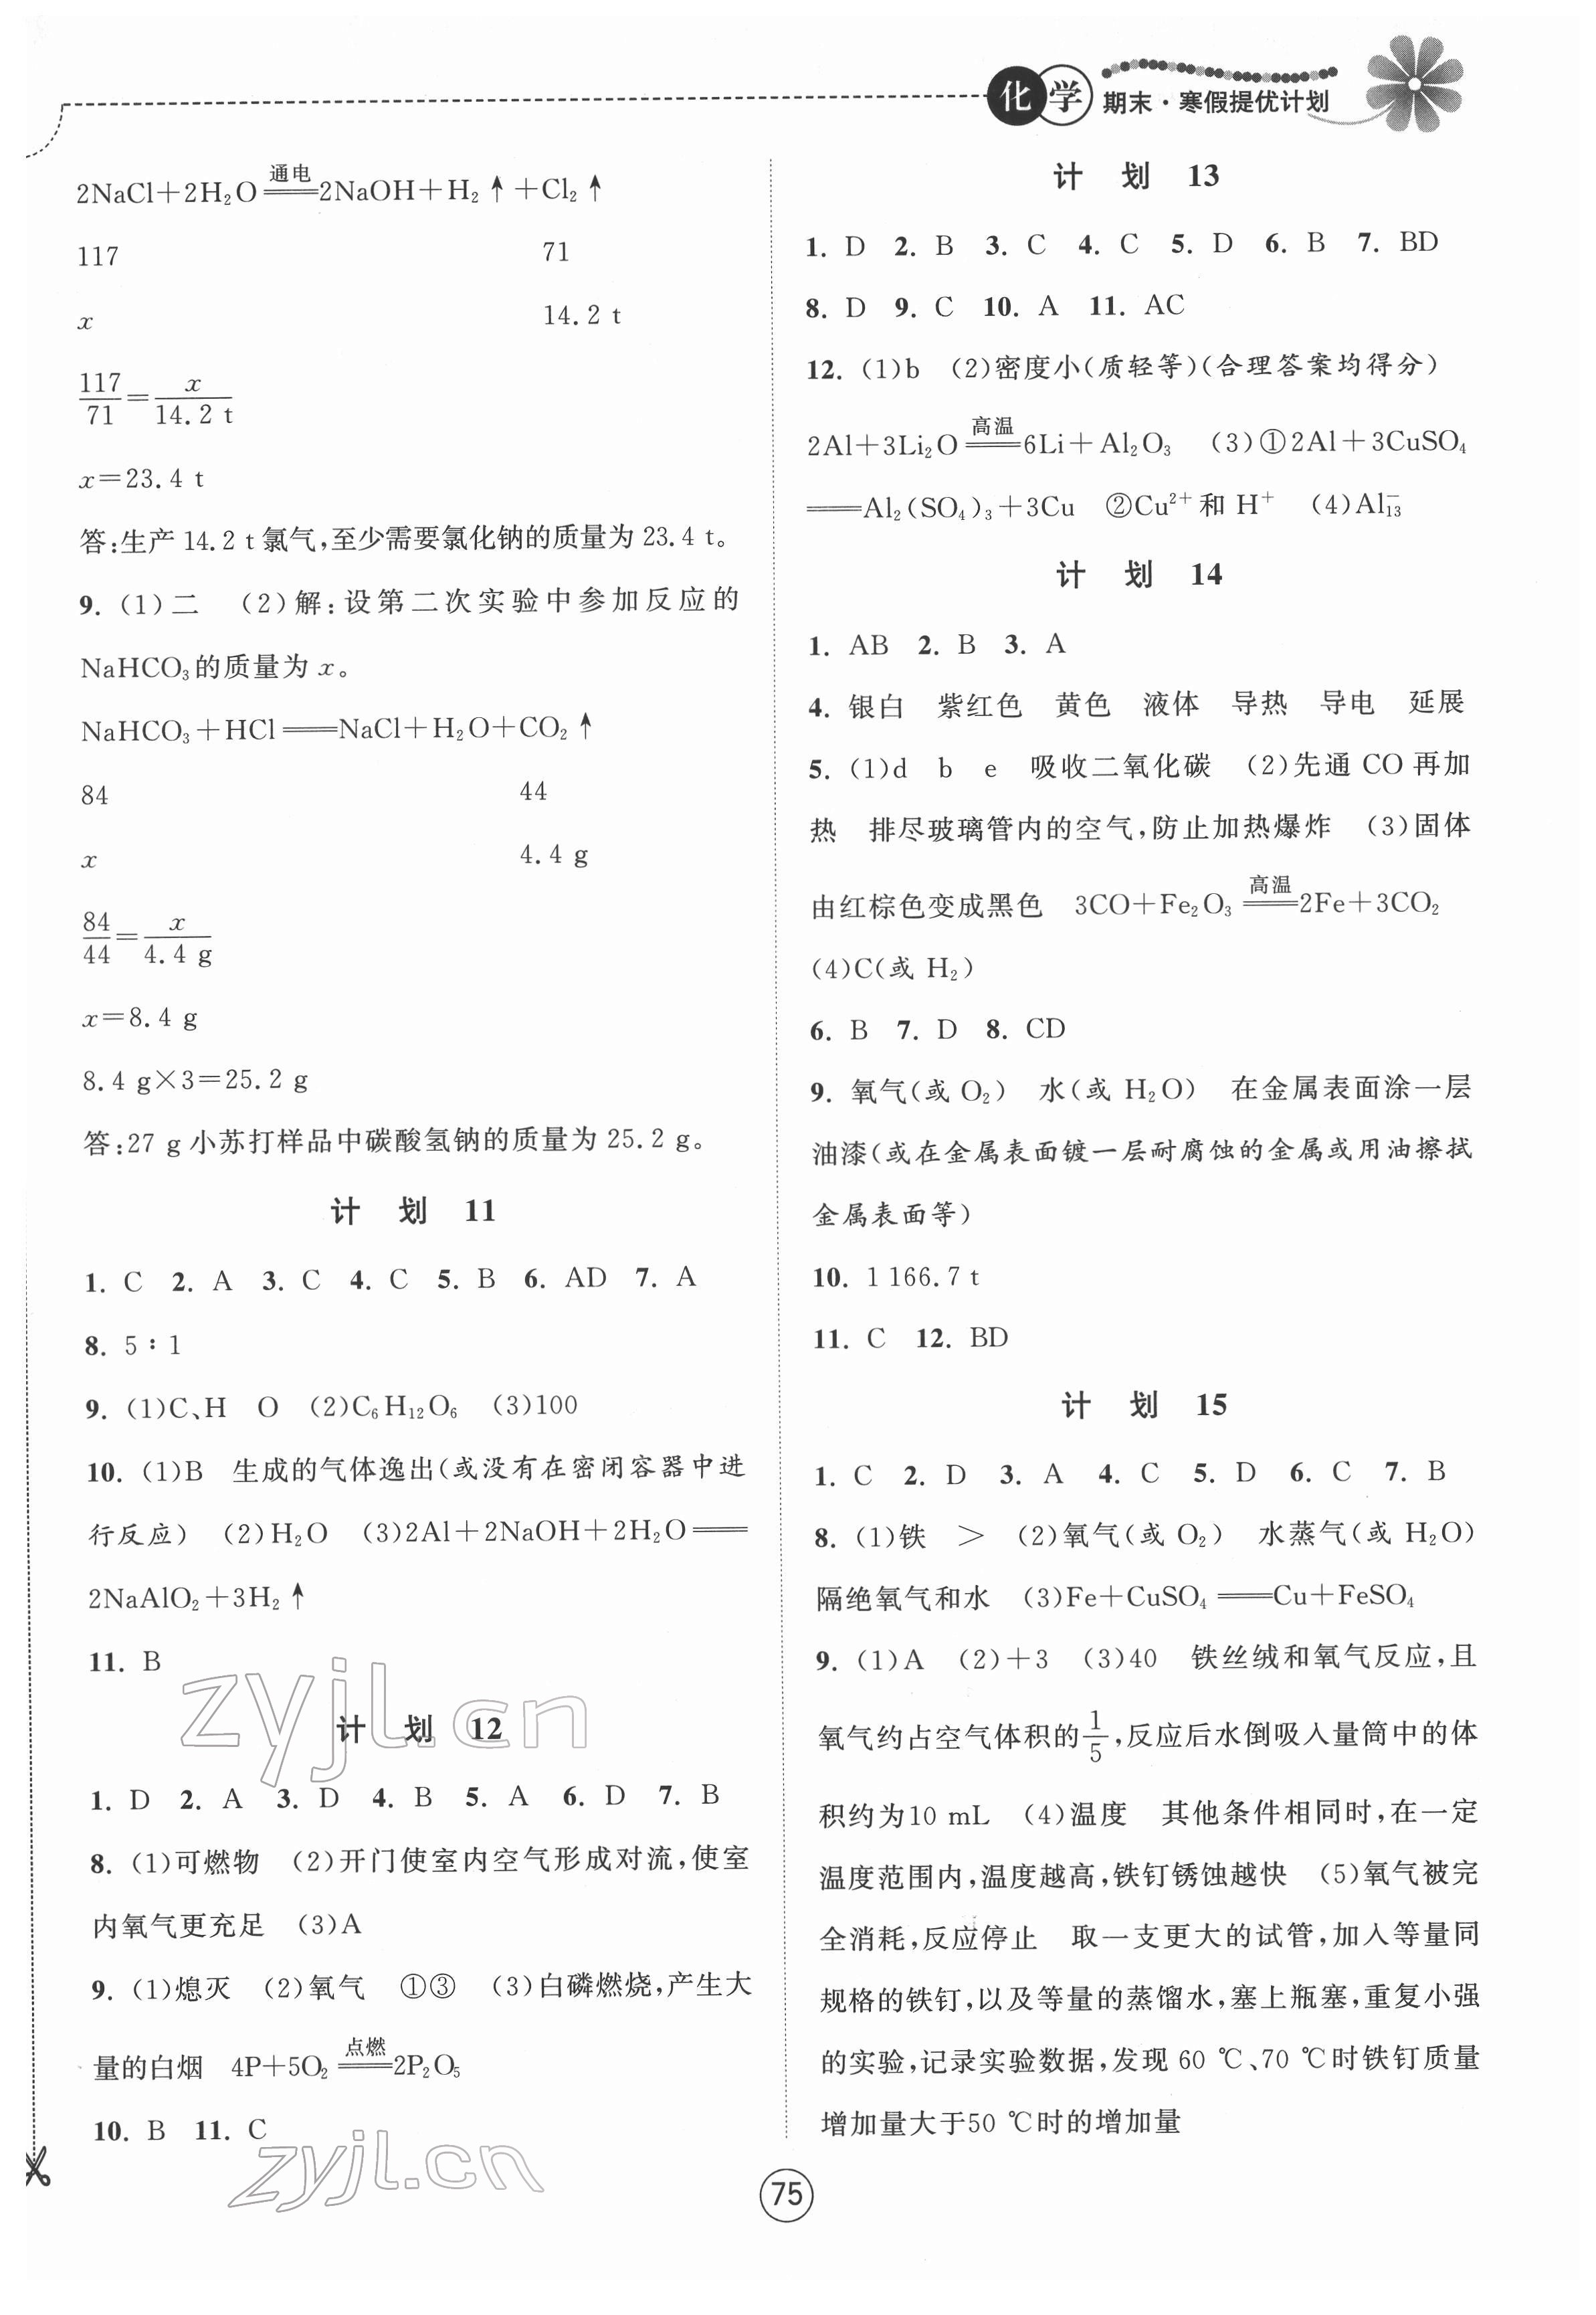 化学
期末·寒假提优计划
2NaCl+2H₂O 通电 ══ 2NaOH+H₂↑+Cl₂↑
117 71
x 14.2 t
117/71=x/14.2 t
x=23.4 t
答:生产 14.2 t 氯气,至少需要氯化钠的质量为 23.4 t。
9. (1)二 (2)解:设第二次实验中参加反应的
NaHCO₃的质量为 x。
NaHCO₃+HCl══NaCl+H₂O+CO₂↑
84 44
x 4.4 g
84/44=x/4.4 g
x=8.4 g
8.4 g×3=25.2 g
答:27 g 小苏打样品中碳酸氢钠的质量为 25.2 g。
计 划 11
1. C 2. A 3. C 4. C 5. B 6. AD 7. A
8. 5∶1
9. (1)C、H O (2)C₆H₁₂O₆ (3)100
10. (1)B 生成的气体逸出(或没有在密闭容器中进
行反应) (2)H₂O (3)2Al+2NaOH+2H₂O══
2NaAlO₂+3H₂↑
11. B
zyjl.cn
计 划 12
1. D 2. A 3. D 4. B 5. A 6. D 7. B
8. (1)可燃物 (2)开门使室内空气形成对流,使室
内氧气更充足 (3)A
9. (1)熄灭 (2)氧气 ①③ (3)白磷燃烧,产生大
量的白烟 4P+5O₂ 点燃 ══ 2P₂O₅
10. B 11. C
zyjl.cn
计 划 13
1. D 2. B 3. C 4. C 5. D 6. B 7. BD
8. D 9. C 10. A 11. AC
12. (1)b (2)密度小(质轻等)(合理答案均得分)
2Al+3Li₂O 高温 ══ 6Li+Al₂O₃ (3)①2Al+3CuSO₄
══Al₂(SO₄)₃+3Cu ②Cu²⁺和 H⁺ (4)Al₁₃⁻
计 划 14
1. AB 2. B 3. A
4. 银白 紫红色 黄色 液体 导热 导电 延展
5. (1)d b e 吸收二氧化碳 (2)先通 CO 再加
热 排尽玻璃管内的空气,防止加热爆炸 (3)固体
由红棕色变成黑色 3CO+Fe₂O₃ 高温 ══ 2Fe+3CO₂
(4)C(或 H₂)
6. B 7. D 8. CD
9. 氧气(或 O₂) 水(或 H₂O) 在金属表面涂一层
油漆(或在金属表面镀一层耐腐蚀的金属或用油擦拭
金属表面等)
10. 1 166.7 t
11. C 12. BD
计 划 15
1. C 2. D 3. A 4. C 5. D 6. C 7. B
8. (1)铁 > (2)氧气(或 O₂) 水蒸气(或 H₂O)
隔绝氧气和水 (3)Fe+CuSO₄══Cu+FeSO₄
9. (1)A (2)+3 (3)40 铁丝绒和氧气反应,且
氧气约占空气体积的1/5,反应后水倒吸入量筒中的体
积约为10 mL (4)温度 其他条件相同时,在一定
温度范围内,温度越高,铁钉锈蚀越快 (5)氧气被完
全消耗,反应停止 取一支更大的试管,加入等量同
规格的铁钉,以及等量的蒸馏水,塞上瓶塞,重复小强
的实验,记录实验数据,发现 60 ℃、70 ℃时铁钉质量
增加量大于50 ℃时的增加量
75